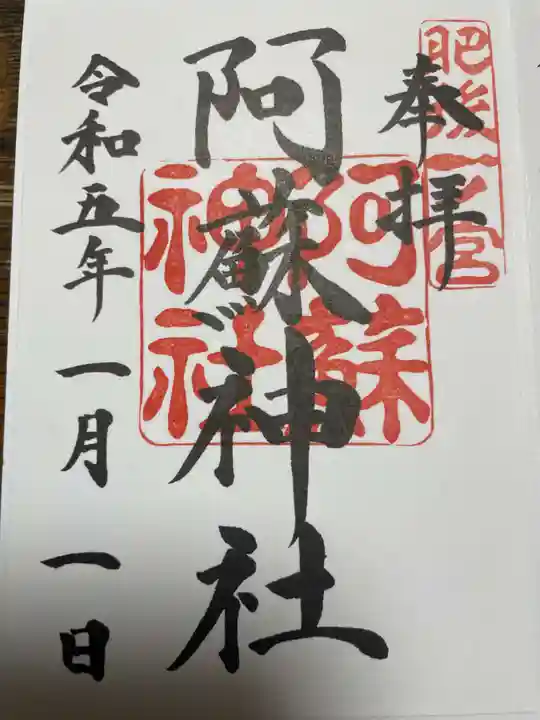 肥後一之宮
奉拝
阿蘇神社
阿蘇
神社
令和五年 一月 一日